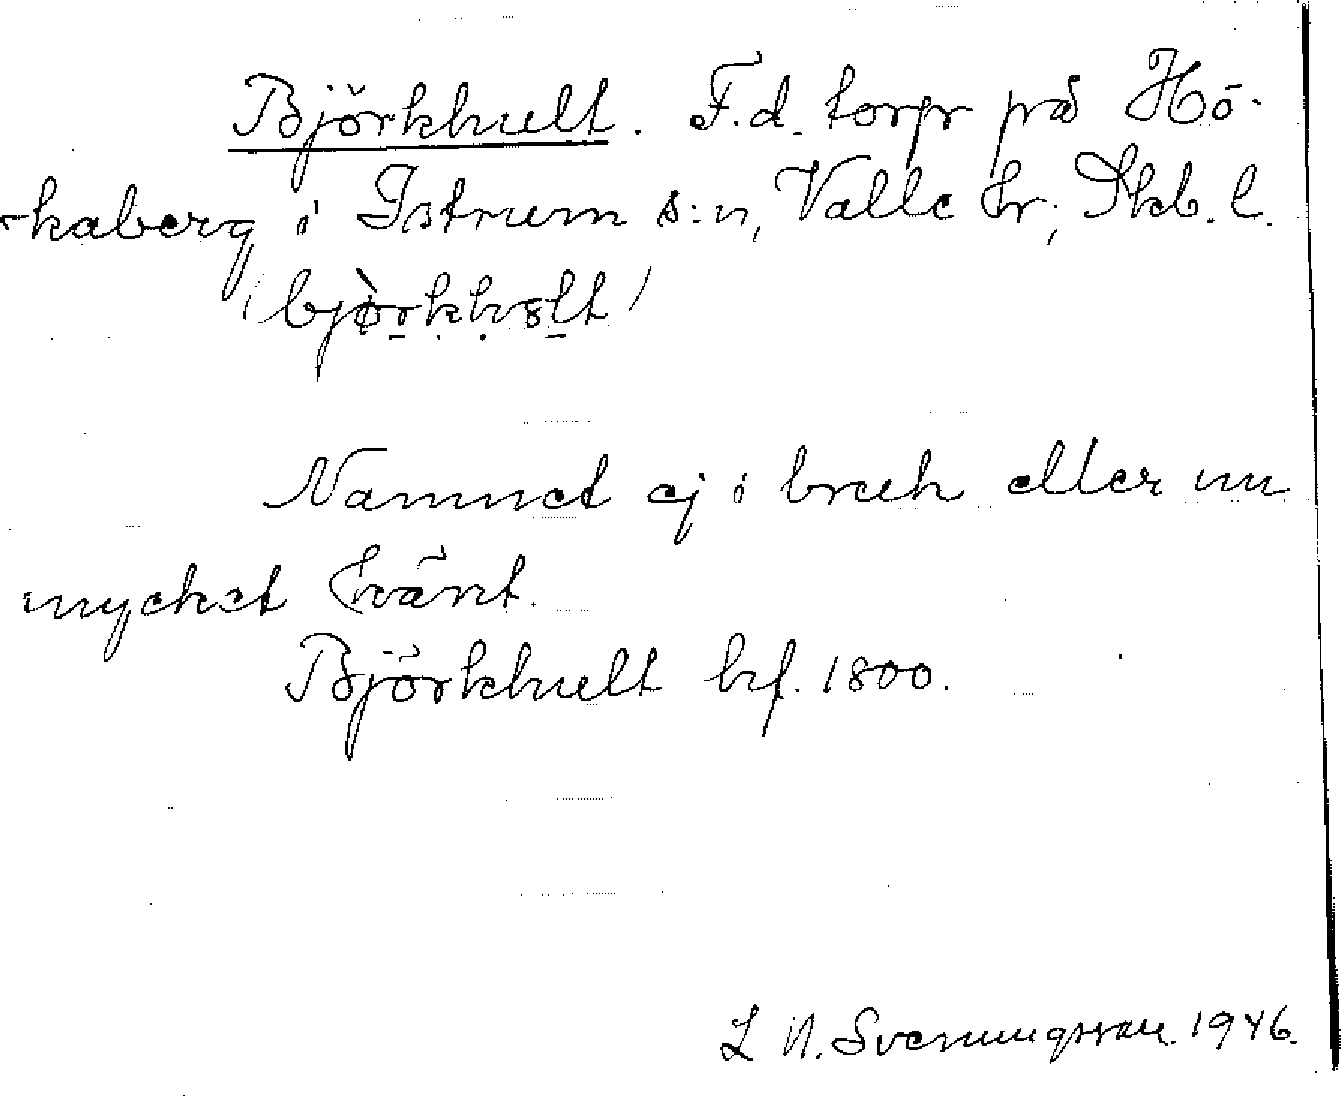 Björkhult. F.d. torp på Hö-
kaberg i Istrum s:n, Valle hr, Skb. l.
(bjòrkhult)
Namnet ej i bruk eller nu
mycket känt.
Björkhult hf. 1800.
L N. Svenungsson. 1946.